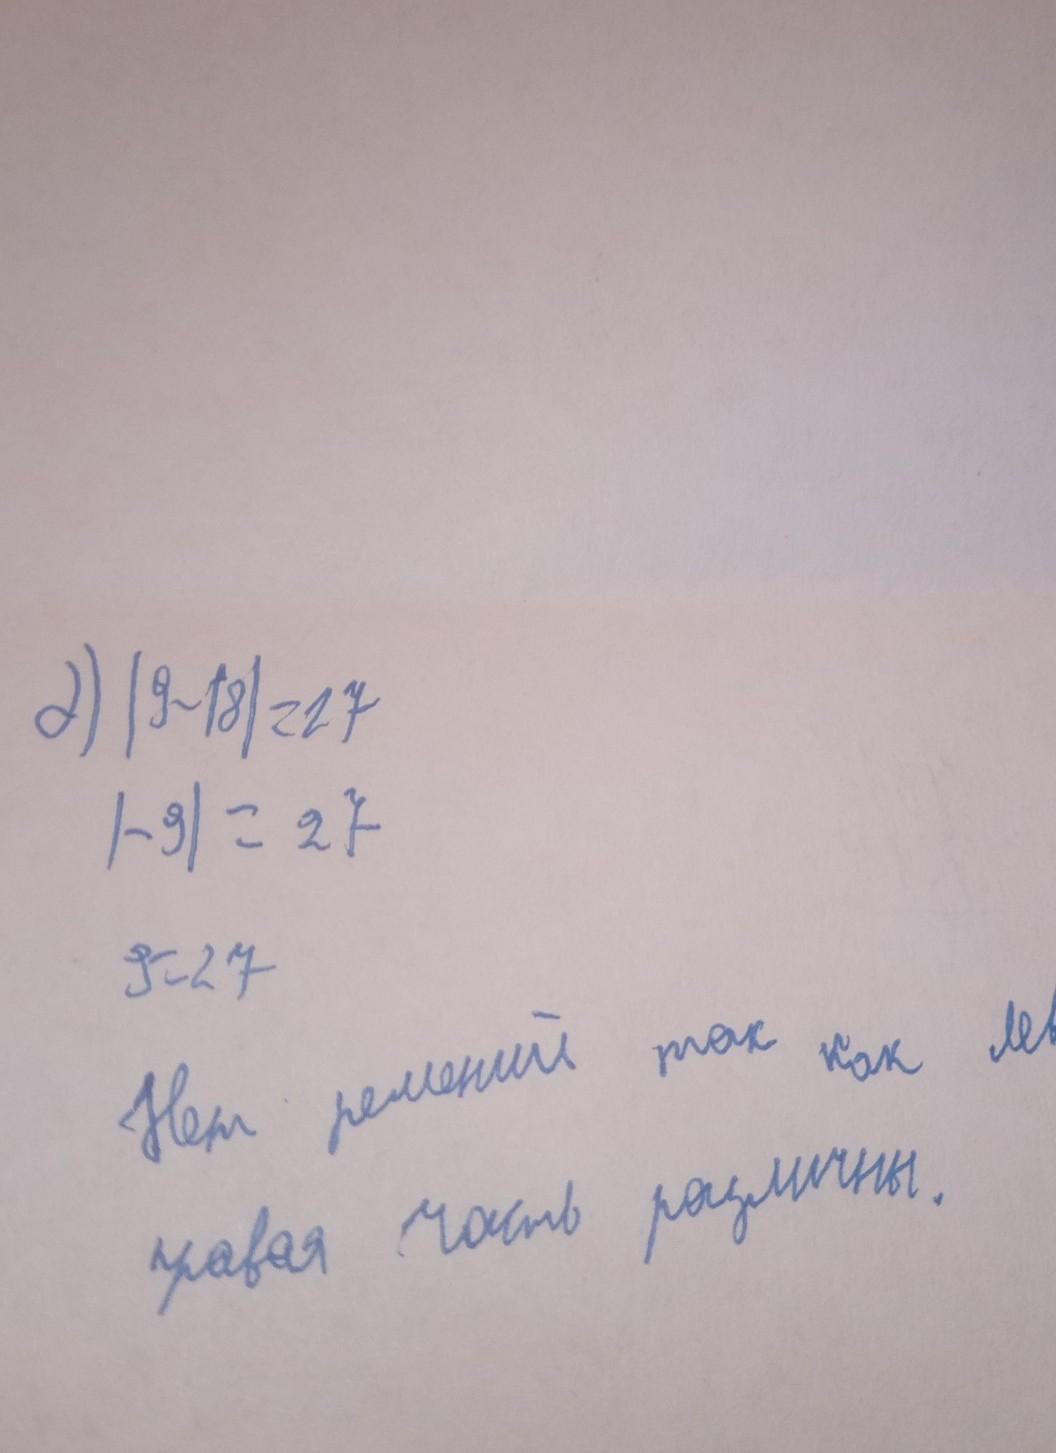 д) |9-18|=27
|-9| = 27
9=27
Нет решений так как
правая часть различны.